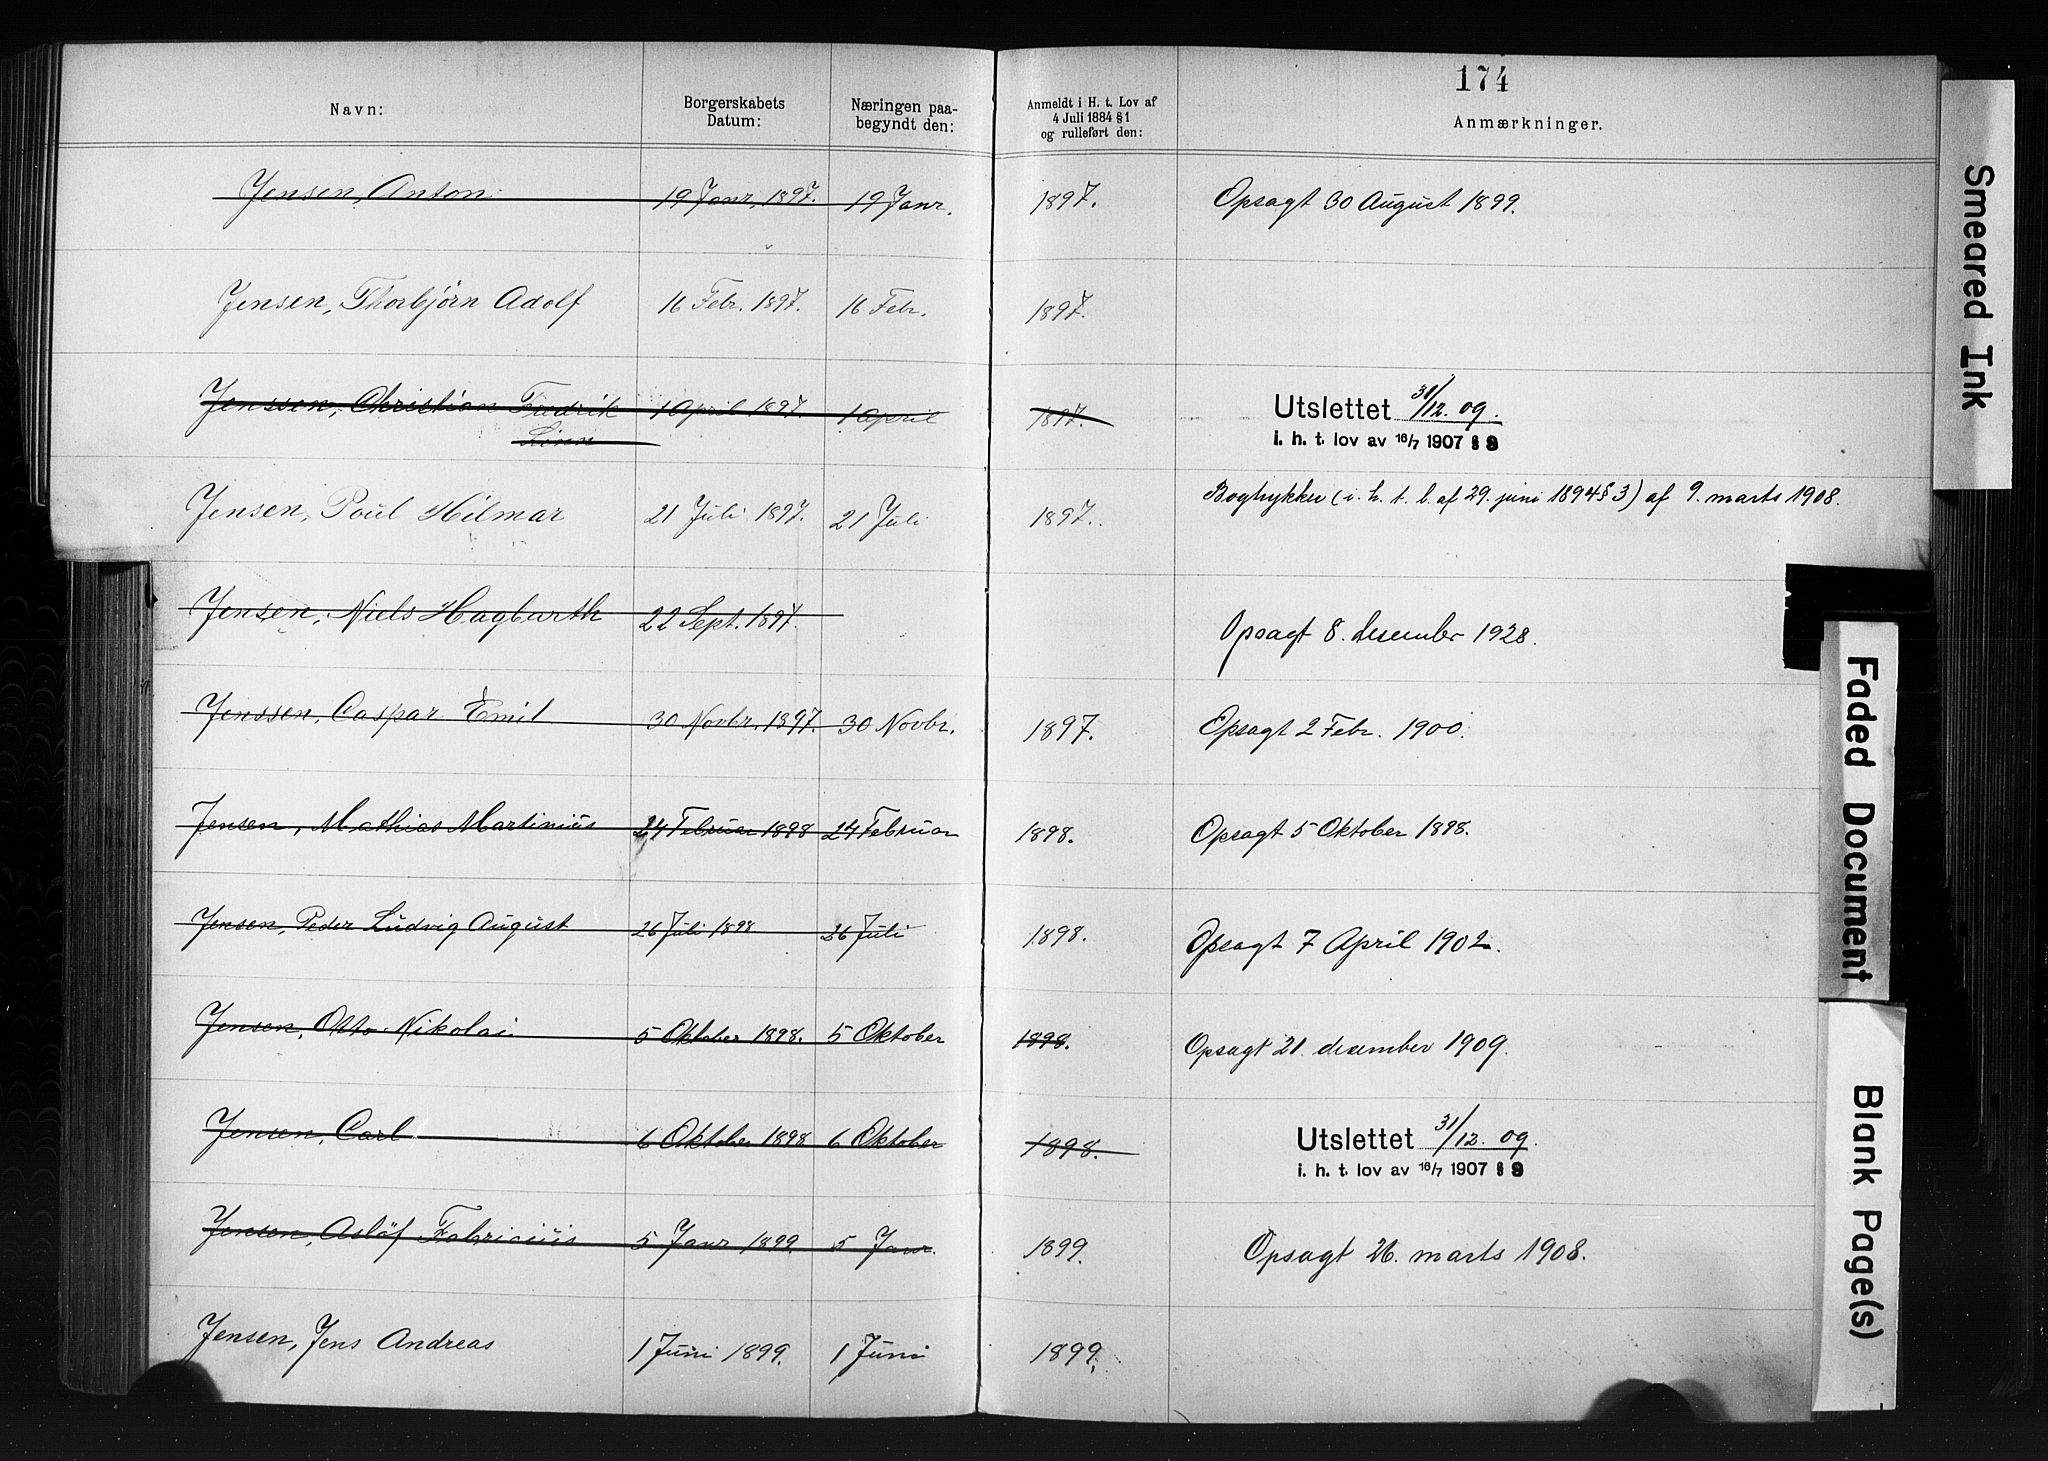 174
Navn: Borgerskabets Datum: Næringen paa-begyndt den: Anmeldt i H. t. Lov af 4 Juli 1884 § 1 og rulleført den: Anmærkninger.
Jensen, Anton 19 Janr. 1897. 19 Janr. 1897. Opsagt 30 August 1899.
Jensen, Thorbjörn Adolf 16 Febr. 1897. 16 Febr. 1897.
Jenssen, Christian Fredrik 1 April 1897. 1 April 1897. Utslettet 31/12. 09.
i. h. t. lov av 16/7 1907 § 9
Jensen, Poul Hilmar 21 Juli 1897. 21 Juli 1897. (i. h. t. l. af 29. juni 1894 § 3) af 9. marts 1908.
Jensen, Niels Hagbarth 22 Sept. 1897. Opsagt 8. desember 1928.
Jenssen, Caspar Emil 30 Novbr. 1897. 30 Novbr. 1897. Opsagt 2 Febr. 1900.
Jensen, Mathias Martinius 24 Februar 1898 24 Februar 1898. Opsagt 5 Oktober 1898.
Jensen, Peder Ludvig August 26 Juli 1898 26 Juli 1898. Opsagt 7 April 1902.
Jensen, Otto Nikolai 5 Oktober 1898. 5 Oktober 1898. Opsagt 21. desember 1909.
Jensen, Carl 6 Oktober 1898 6 Oktober 1898. Utslettet 31/12. 09.
i. h. t. lov av 16/7 1907 § 9
Jensen, Aslöf Fabricius 5 Janr 1899. 5 Janr. 1899. Opsagt 26. marts 1908.
Jensen, Jens Andreas 1 Juni 1899. 1 Juni 1899.
Smeared Ink
Faded Document
Blank Page(s)